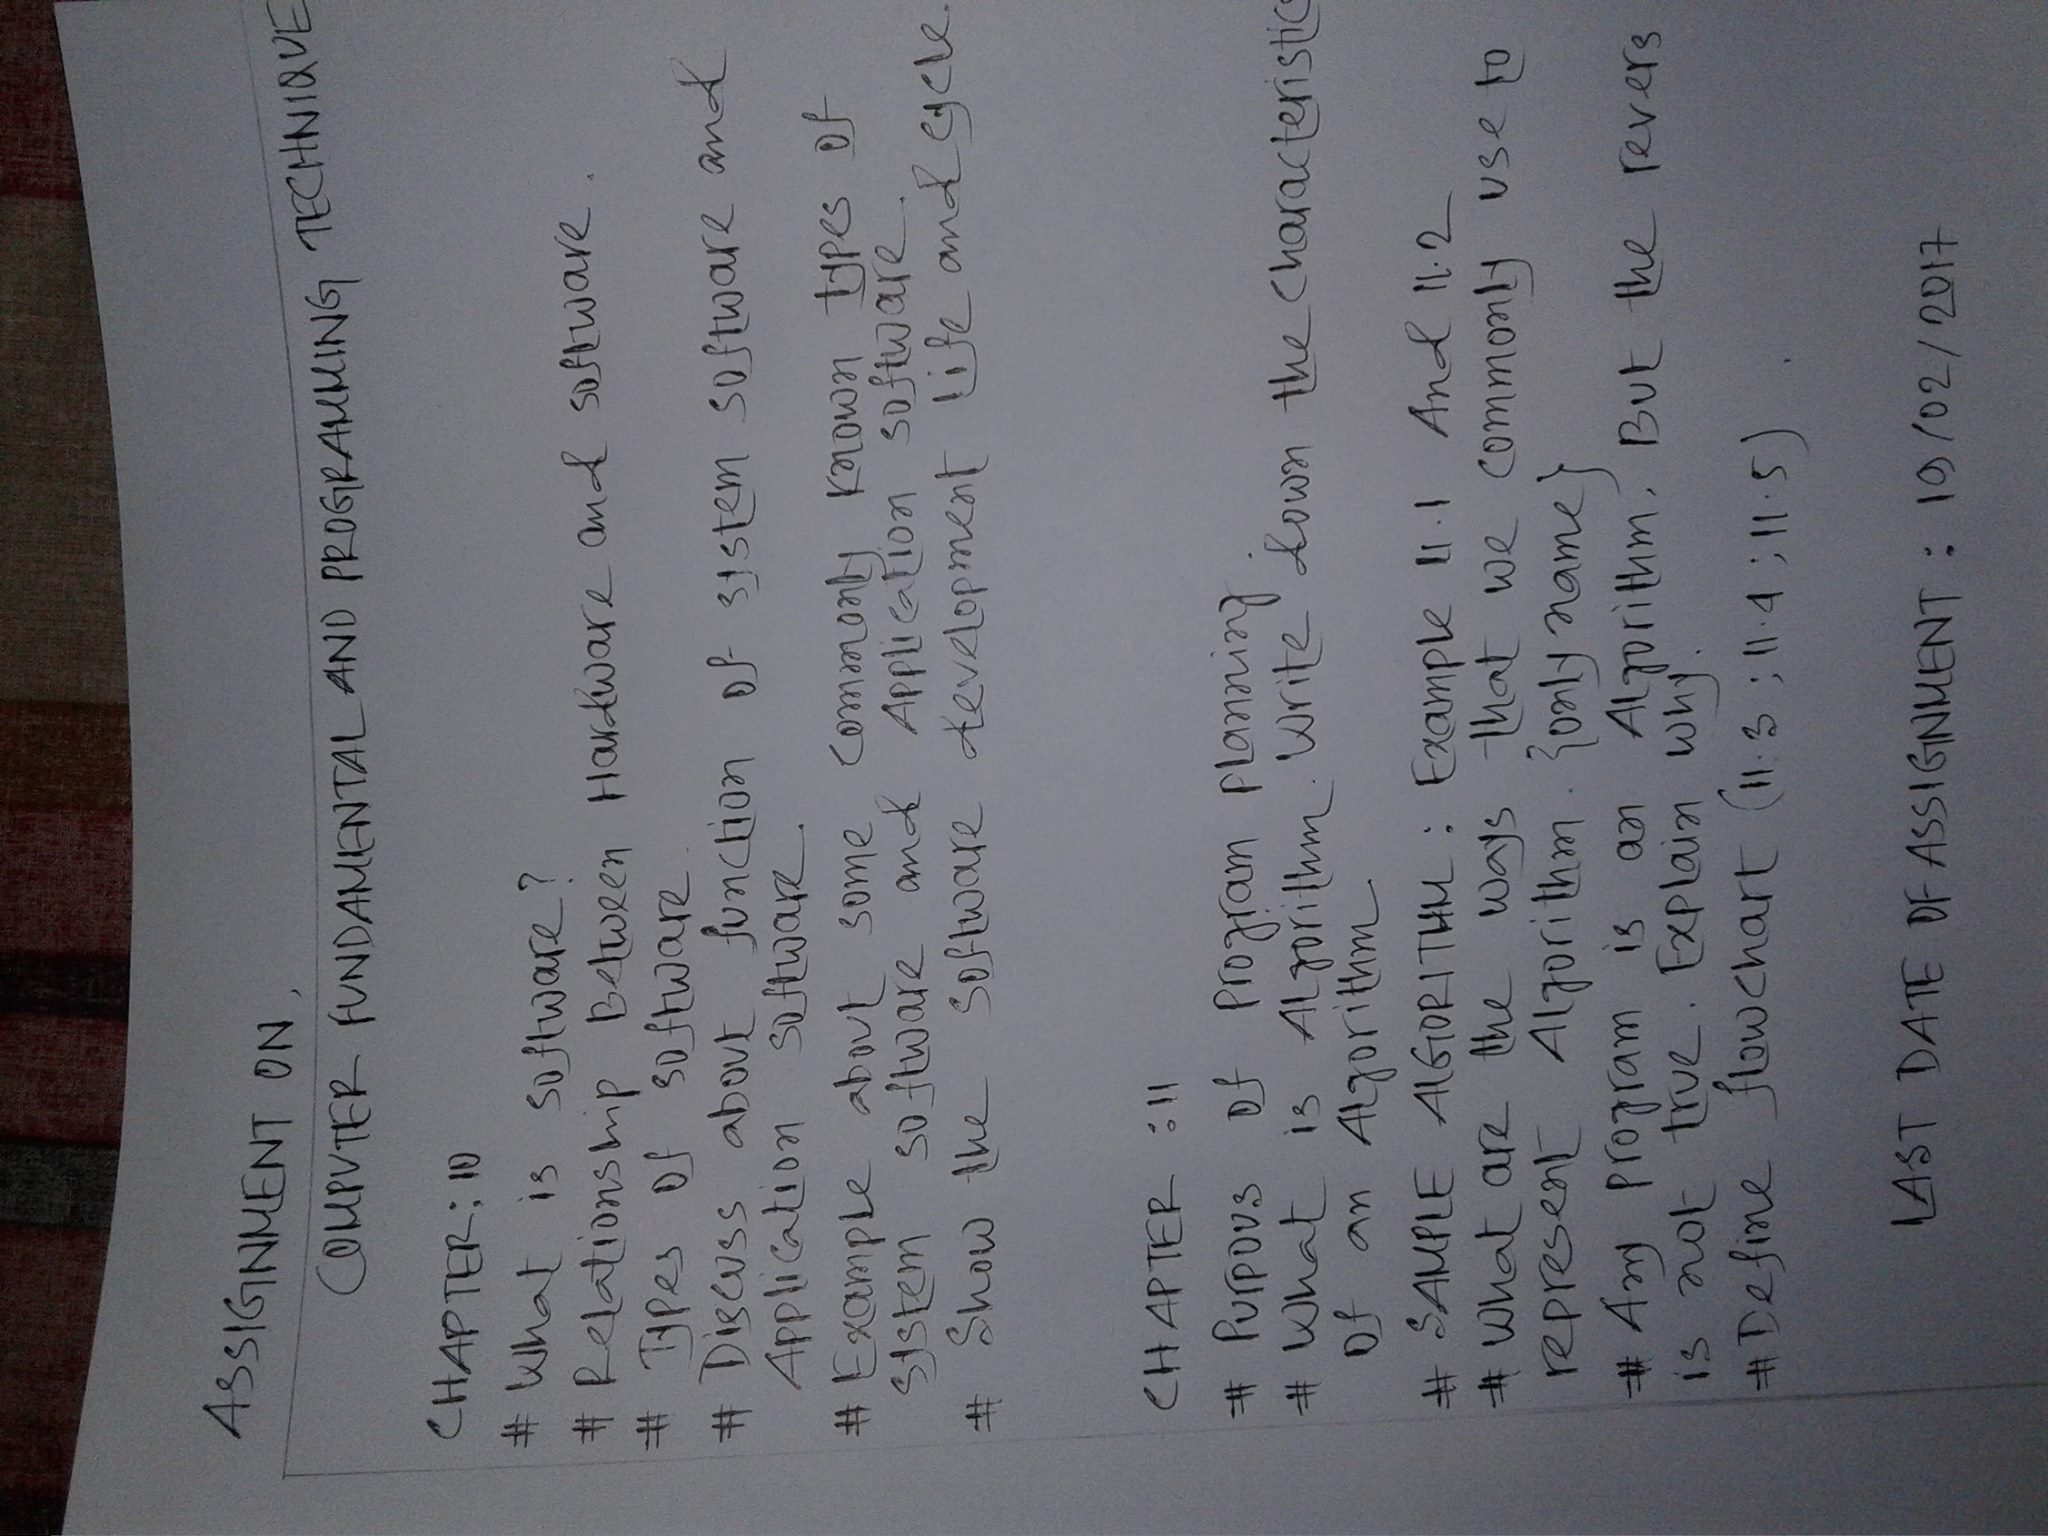 ASSIGNMENT ON,
COMPUTER FUNDAMENTAL AND PROGRAMMING TECHNIQUE
CHAPTER:10
# What is software?
# Relationship Between Hardware and software.
# Types of software.
# Discuss about function of system software and
Application software.
# Example about some commonly known types of
system software and Application software.
# Show the software development life and cycle.
CHAPTER :11
# Purpous of Program planning
# What is Algorithm. Write down the characteristics
of an Algorithm.
# SAMPLE ALGORITHM : Example 11.1 And 11.2
# What are the ways that we commonly use to
represent Algorithm. {only name}
# Any program is an Algorithm. But the revers
is not true. Explain why.
# Define flowchart (11.3 ; 11.4 ; 11.5)
LAST DATE OF ASSIGNMENT : 19/02/2017